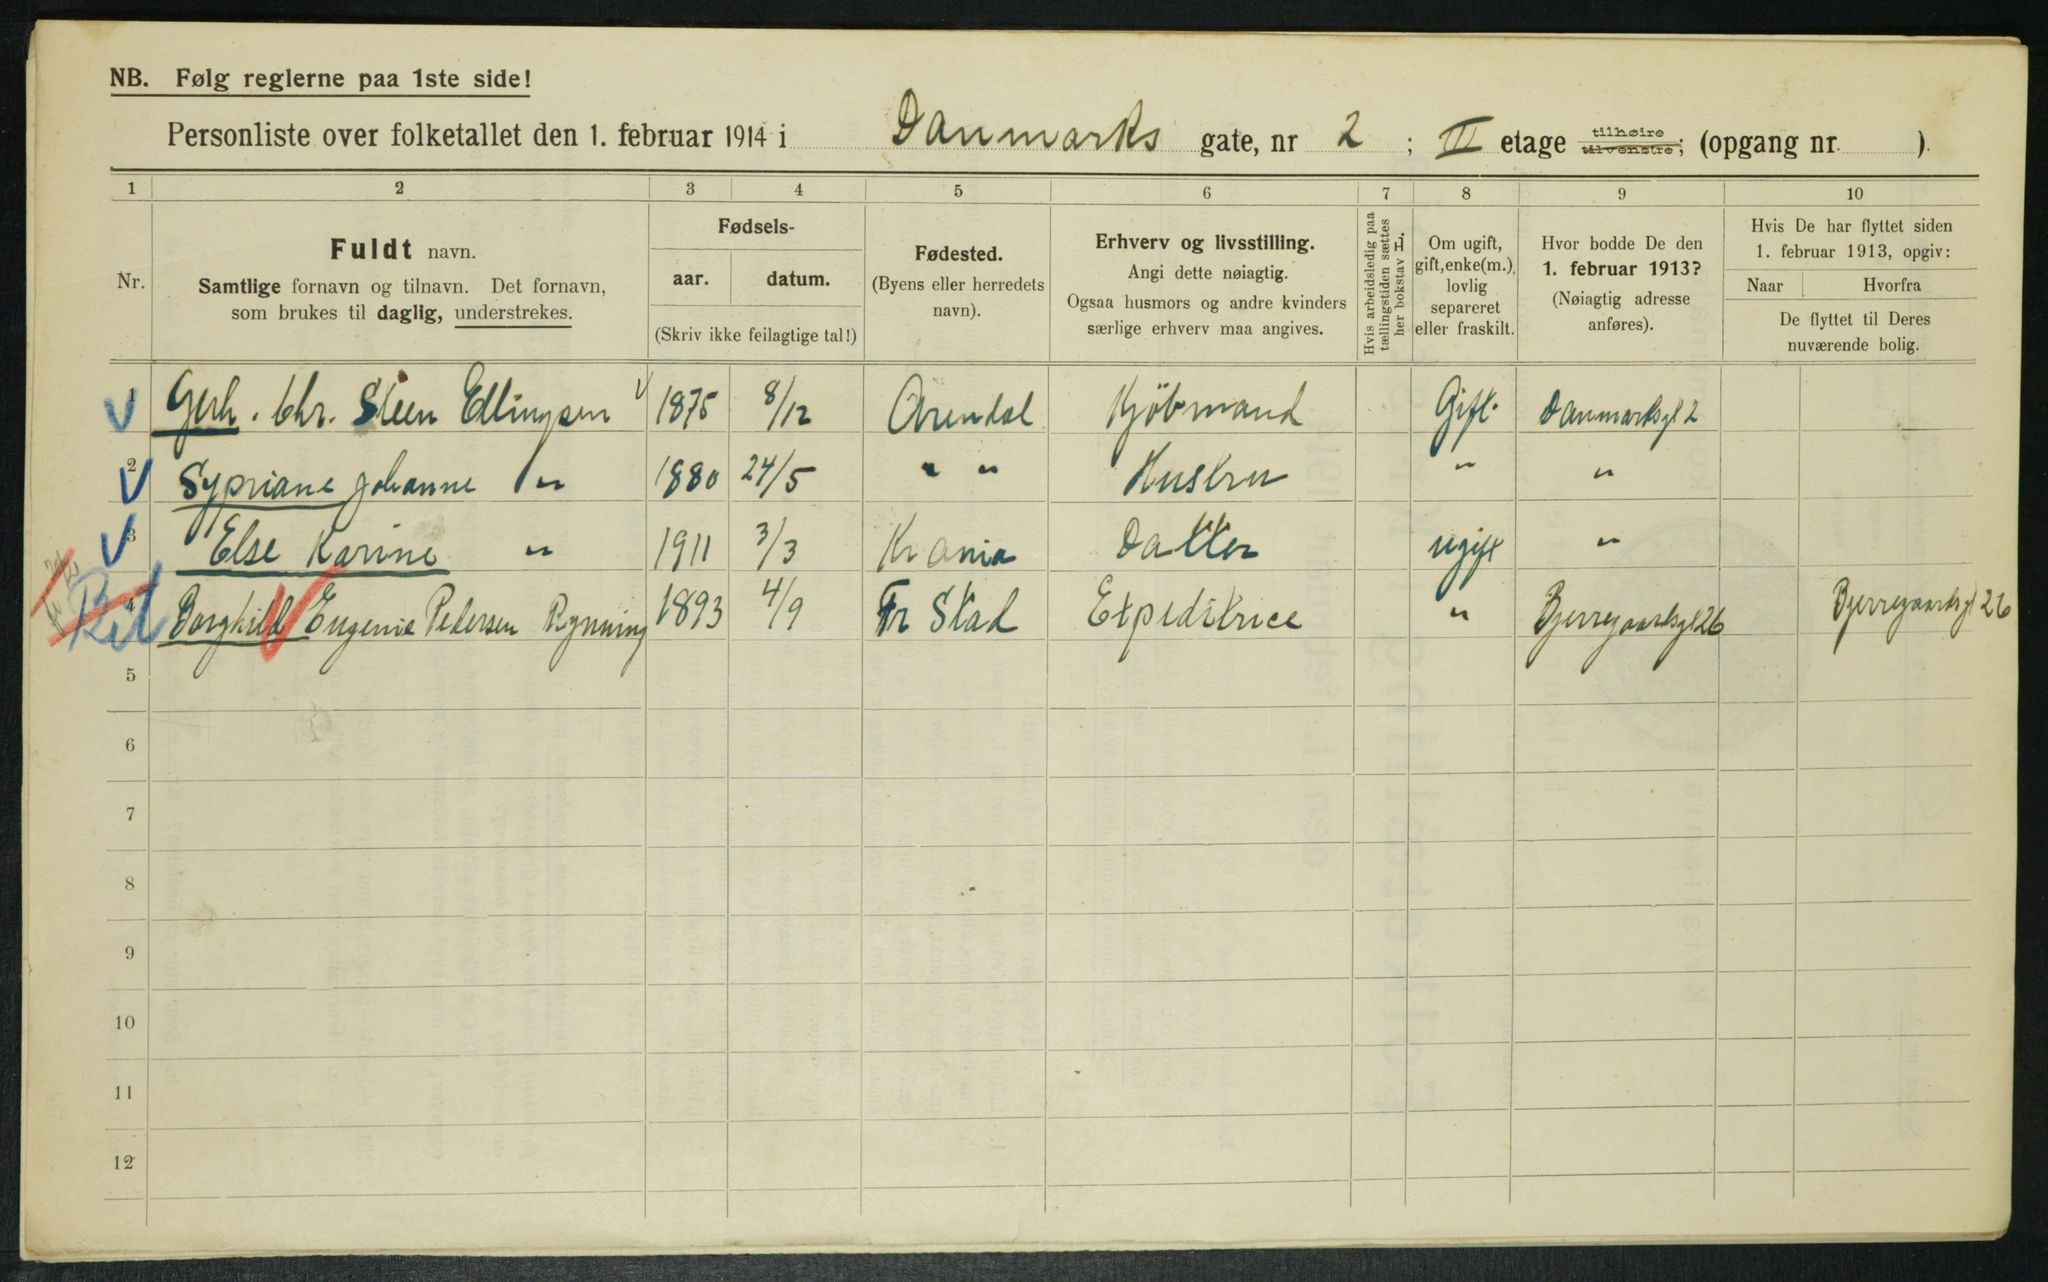 NB. Følg reglerne paa 1ste side!
Personliste over folketallet den 1. februar 1914 i Danmarks gate, nr 2 ; III etage tilhøire tilvenstre; (opgang nr. ).
1 2 3 4 5 6 7 8 9 10
Nr.
Fuldt navn.
Samtlige fornavn og tilnavn. Det fornavn,
som brukes til daglig, understrekes.
Fødsels-
aar. datum.
(Skriv ikke feilagtige tal!)
Fødested.
(Byens eller herredets
navn).
Erhverv og livsstilling.
Angi dette nøiagtig.
Ogsaa husmors og andre kvinders
særlige erhverv maa angives.
Hvis arbeidsledig paa
tællingstiden sættes
her bokstav H.
Om ugift,
gift, enke(m.),
lovlig
separeret
eller fraskilt.
Hvor bodde De den
1. februar 1913?
(Nøiagtig adresse
anføres).
Hvis De har flyttet siden
1. februar 1913, opgiv:
Naar Hvorfra
De flyttet til Deres
nuværende bolig.
1 Gerh. Chr. Steen Ellingsen 1875 8/12 Arendal Kjöbmand Gift Danmarksgt 2
2 Sypriane Johanne " 1880 24/5 " " Hustru " "
3 Else Karine " 1911 3/3 Kr ania Datter ugift "
4 Borghild Eugenie Pedersen Rynning 1893 4/9 Fr Stad Expeditrice " Bjerregaardsgt 26 Bjerregaardsgt 26
5
6
7
8
9
10
11
12